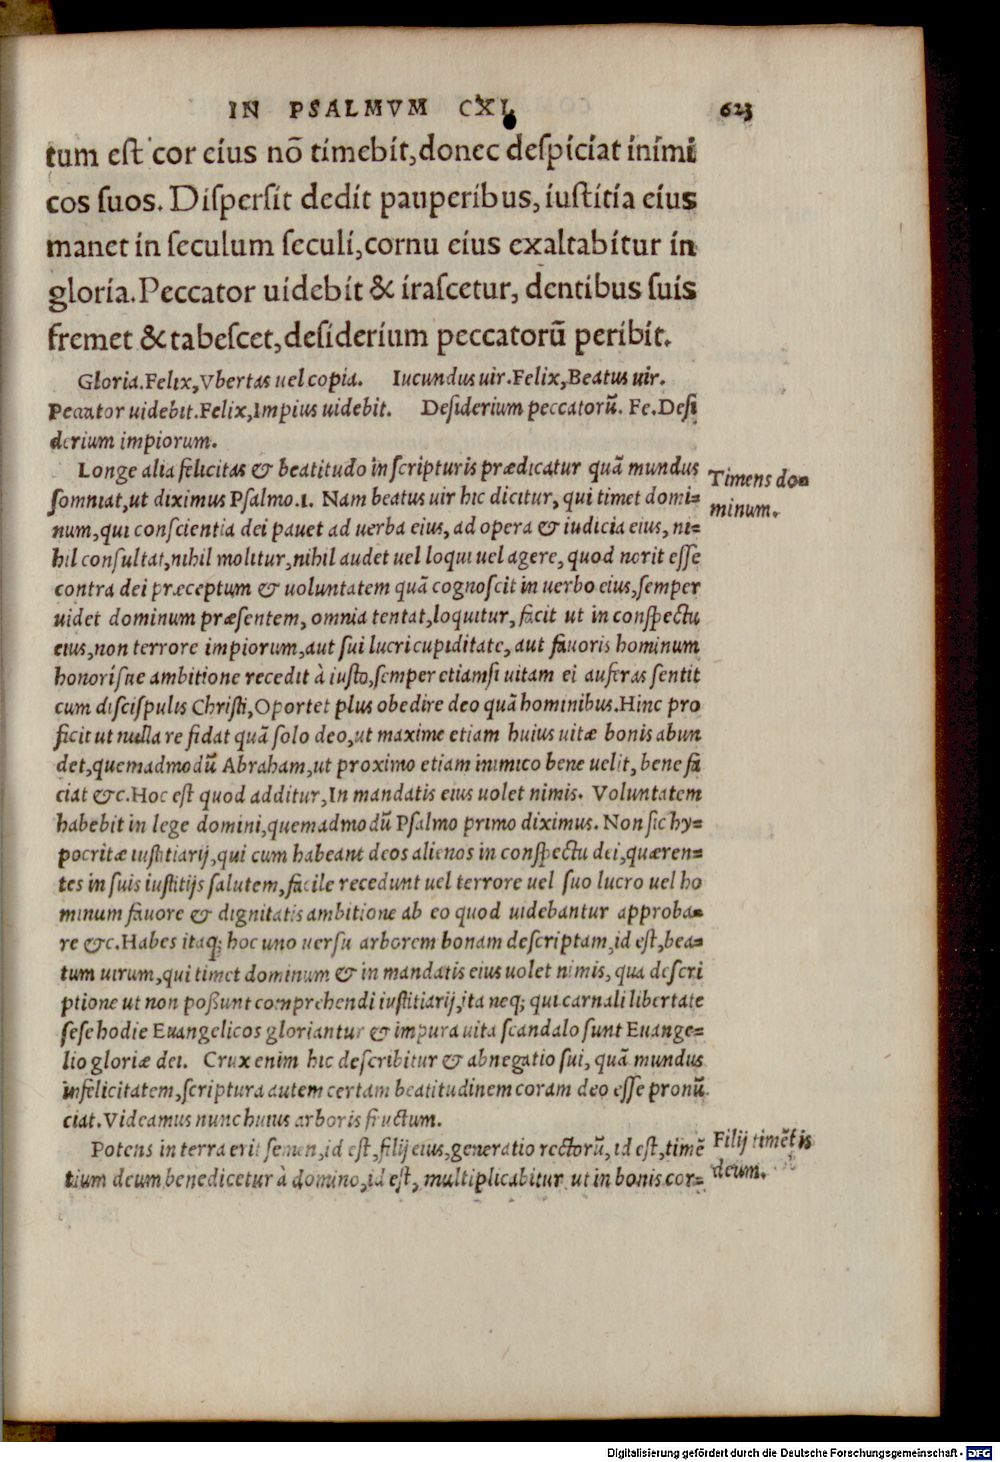 IN PSALMVM CXI. 623
tum est cor eius nõ timebit, donec despiciat inimi
cos suos. Dispersit dedit pauperibus, iustitia eius
manet in seculum seculi, cornu eius exaltabitur in
gloria. Peccator uidebit & irascetur, dentibus suis
fremet & tabescet, desiderium peccatorũ peribit.
Gloria. Felix, Vbertas uel copia. Iucundus uir. Felix, Beatus uir.
Peccator uidebit. Felix, Impius uidebit. Desiderium peccatorũ. Fe. Desi
derium impiorum.
Longe alia felicitas & beatitudo in scripturis prædicatur quã mundus
somniat, ut diximus Psalmo. 1. Nam beatus uir hic dicitur, qui timet domi=
num, qui conscientia dei pauet ad uerba eius, ad opera & iudicia eius, ni=
hil consultat, nihil molitur, nihil audet uel loqui uel agere, quod norit esse
contra dei præceptum & uoluntatem quã cognoscit in uerbo eius, semper
uidet dominum præsentem, omnia tentat, loquitur, facit ut in conspectu
eius, non terrore impiorum, aut sui lucri cupiditate, aut fauoris hominum
honorisue ambitione recedit à iusto, semper etiamsi uitam ei auferas sentit
cum discispulis Christi, Oportet plus obedire deo quã hominibus. Hinc pro
ficit ut nulla re fidat quã solo deo, ut maxime etiam huius uitæ bonis abun
det, quemadmodũ Abraham, ut proximo etiam inimico bene uelit, bene fa
ciat &c. Hoc est quod additur, In mandatis eius uolet nimis. Voluntatem
habebit in lege domini, quemadmodũ Psalmo primo diximus. Non sic hy=
pocritæ iustitiarij, qui cum habeant deos alienos in conspectu dei, quæren=
tes in suis iustitijs salutem, facile recedunt uel terrore uel suo lucro uel ho
minum fauore & dignitatis ambitione ab eo quod uidebantur approba=
re &c. Habes itaq; hoc uno uersu arborem bonam descriptam, id est, bea=
tum uirum, qui timet dominum & in mandatis eius uolet nimis, qua descri
ptione ut non possunt comprehendi iustitiarij, ita neq; qui carnali libertate
sese hodie Euangelicos gloriantur & impura uita scandalo sunt Euange=
lio gloriæ dei. Crux enim hic describitur & abnegatio sui, quã mundus
infelicitatem, scriptura autem certam beatitudinem coram deo esse pronũ
ciat. Videamus nunc huius arboris fructum.
Potens in terra erit semen, id est, filij eius, generatio rectorũ, id est, timẽ
tium deum benedicetur à domino, id est, multiplicabitur ut in bonis cor=
Timens do=
minum.
Filij timẽtis
deum.
Digitalisierung gefördert durch die Deutsche Forschungsgemeinschaft - DFG